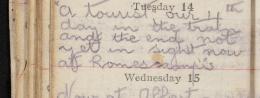 Tuesday 14
A tourist our 4th
day in the train
and the end not
yet in sight now
at Romescamps
Wednesday 15
Now at